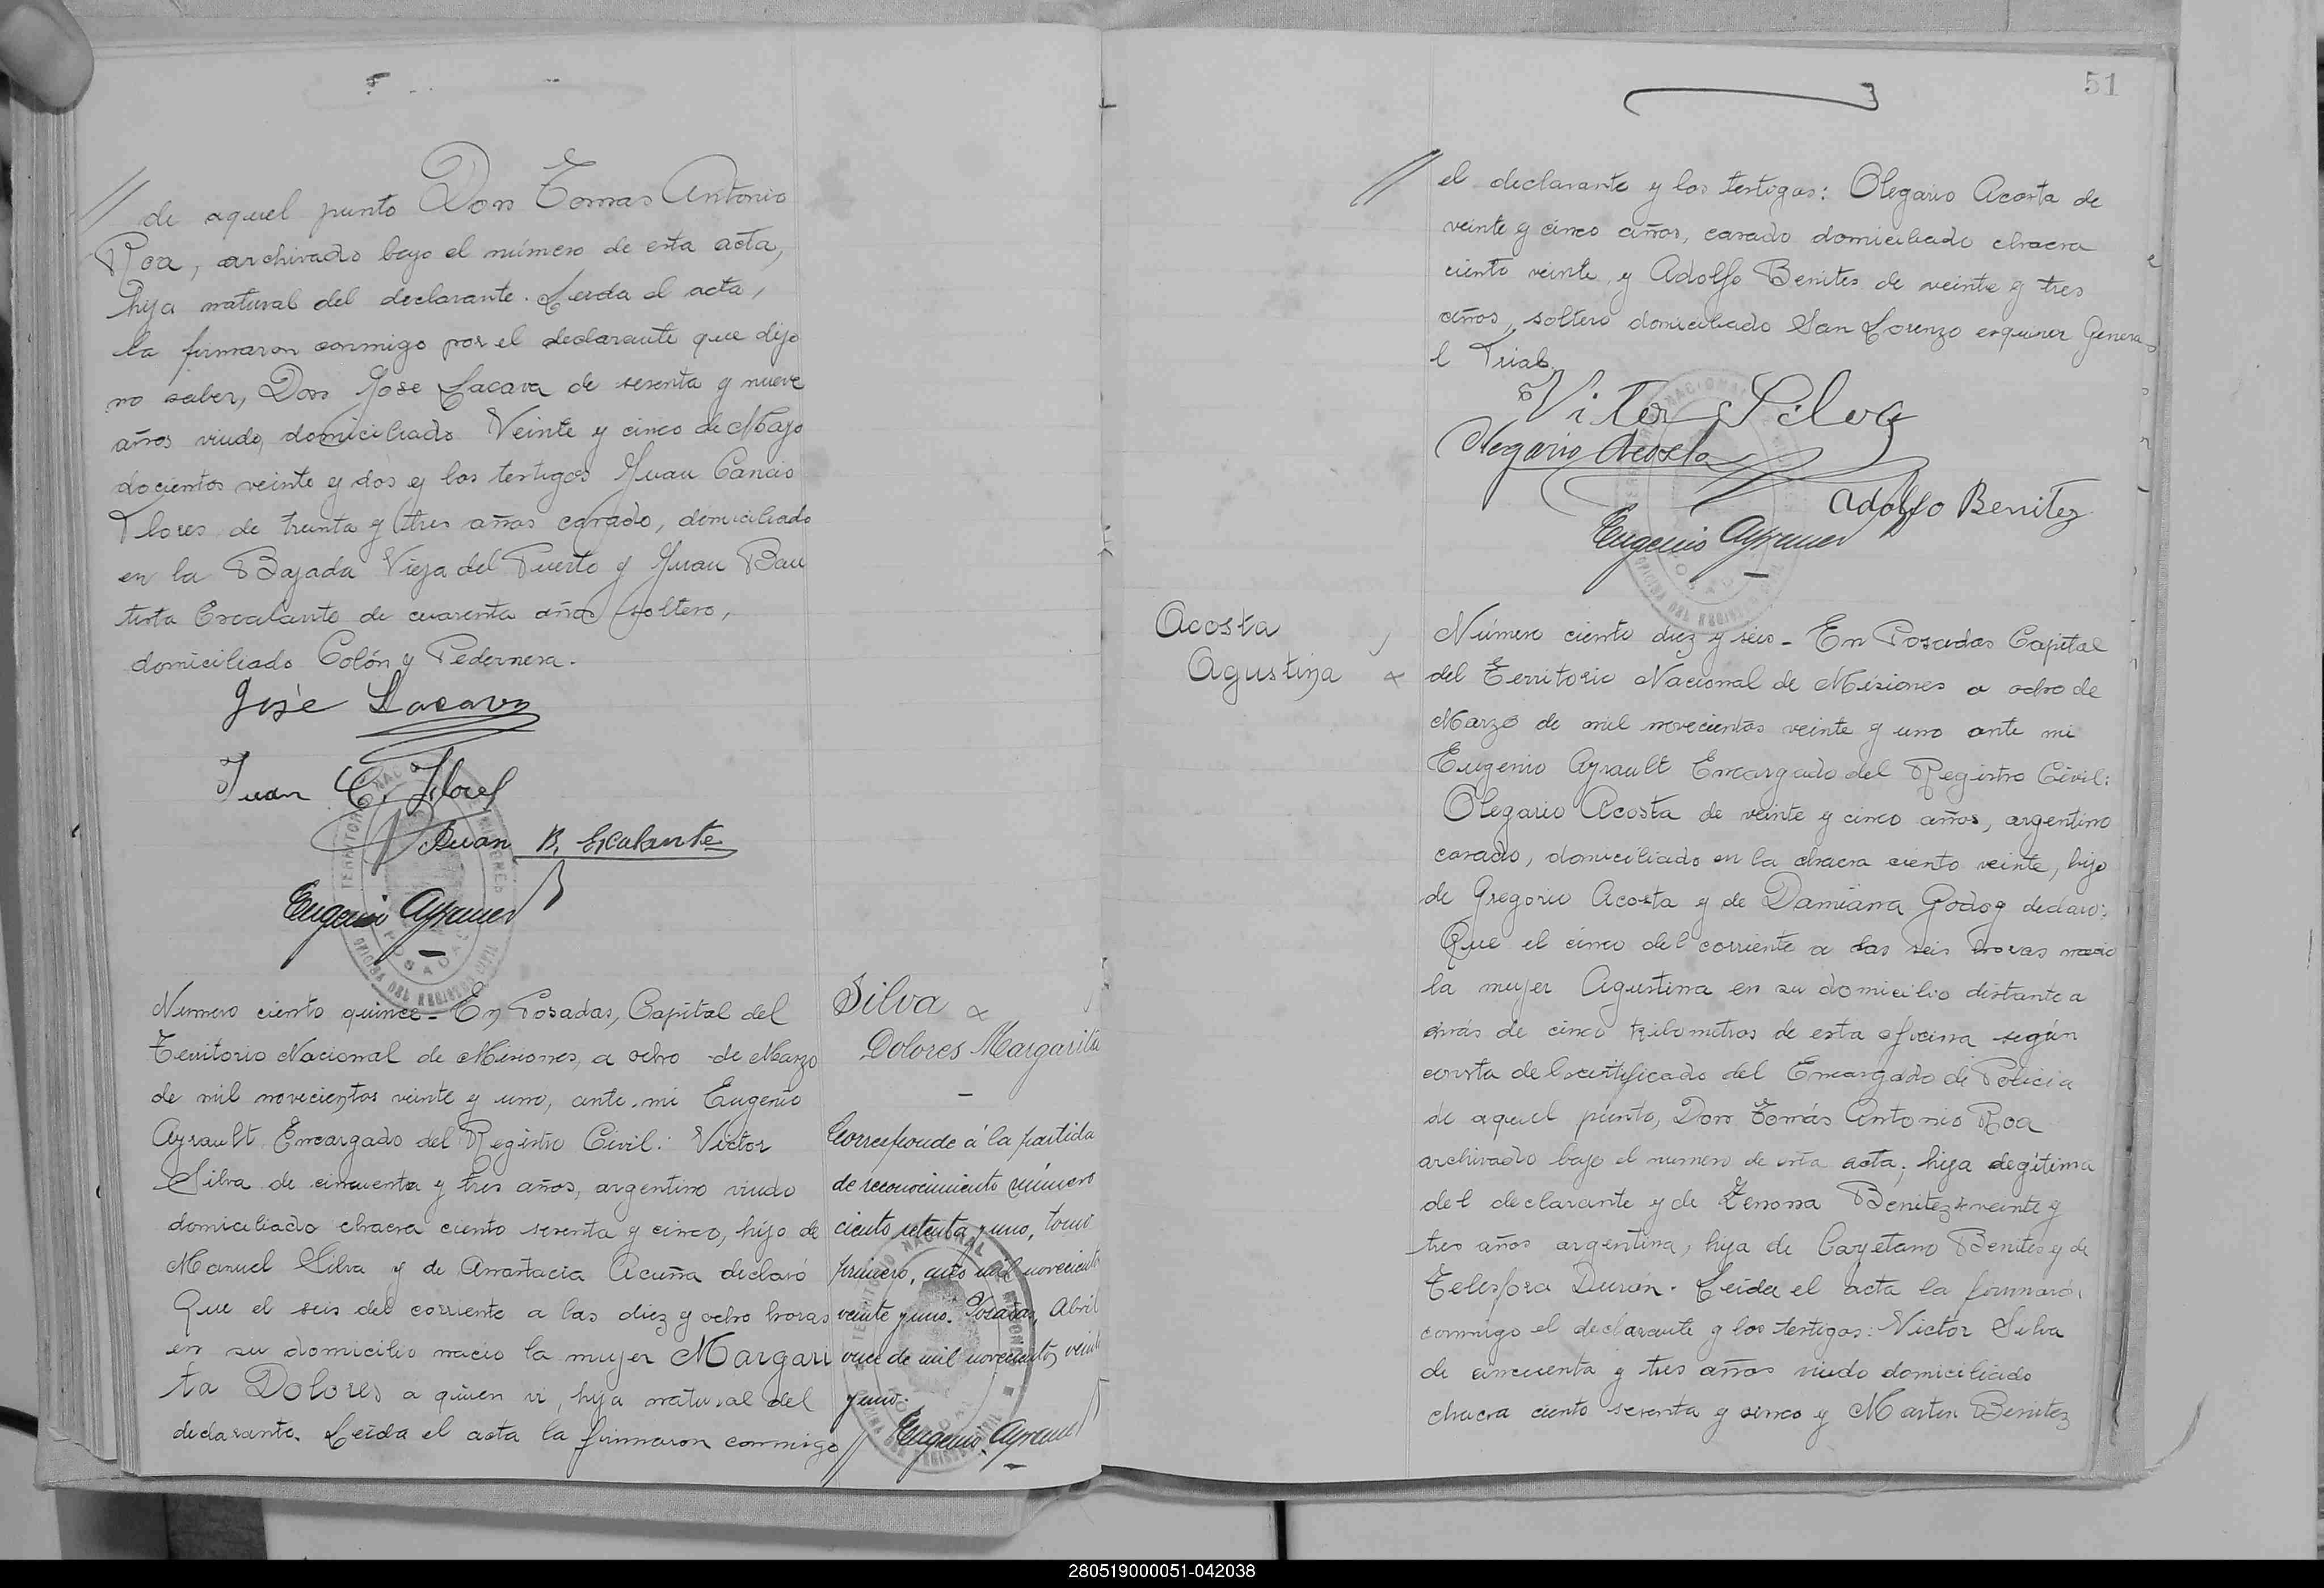 // de aquel punto Don Tomas Antonio
Roa, archivado bajo el número de esta acta,
hija natural del declarante. Leida el acta,
la firmaron conmigo por el declarante que dijo
no saber, Don Jose Lacava de sesenta y nueve
años viudo, domiciliado Veinte y cinco de Mayo
docientos veinte y dos y los testigos Juan Cancio
Flores de treinta y tres años casado, domiciliado
en la Bajada Vieja del Puerto y Juan Bau
tista Escalante de cuarenta años soltero,
domiciliado Colón y Pedernera.
José Lacava
Juan C. Flores
Juan B. Escalante
Eugenio Ayrault
Numero ciento quince - En Posadas, Capital del
Territorio Nacional de Misiones, a ocho de Marzo
de mil novecientos veinte y uno, ante mi Eugenio
Ayrault Encargado del Registro Civil: Victor
Silva de cincuenta y tres años, argentino viudo
domiciliado chacra ciento sesenta y cinco, hijo de
Manuel Silva y de Anastacia Acuña declaró
Que el seis del corriente a las diez y ocho horas
en su domicilio nacio la mujer Margari
ta Dolores a quien vi, hija natural del
declarante. Leida el acta la firmaron conmigo //
Silva
Dolores Margarita
Corresponde á la partida
de reconocimiento número
ciento setenta y uno, tomo
primero, año mil novecientos
veinte y uno. Posadas, Abril
once de mil novecientos veinte
y uno.
Eugenio Ayrault
51
// el declarante y los testigos: Olegario Acosta de
veinte y cinco años, casado domiciliado chacra
ciento veinte y Adolfo Benites de veinte y tres
años, soltero domiciliado San Lorenzo esquina Genera
l Frias
Vitor Silva
Olegario Acosta
Adolfo Benitez
Eugenio Ayrault
Acosta
Agustina
Número ciento diez y seis - En Posadas Capital
del Territorio Nacional de Misiones a ocho de
Marzo de mil novecientos veinte y uno ante mi
Eugenio Ayrault Encargado del Registro Civil:
Olegario Acosta de veinte y cinco años, argentino
casado, domiciliado en la chacra ciento veinte, hijo
de Gregorio Acosta y de Damiana Godoy declaro:
Que el cinco del corriente a las seis horas nacio
la mujer Agustina en su domicilio distante a
más de cinco kilometros de esta oficina según
consta del certificado del Encargado de Policia
de aquel punto, Don Tomás Antonio Roa
archivado bajo el numero de esta acta; hija legitima
del declarante y de Zenona Benitez de veinte y
tres años argentina, hija de Cayetano Benites y de
Telesfora Duran. Leida el acta la firmaron
conmigo el declarante y los testigos: Victor Silva
de cincuenta y tres años viudo domiciliado
chacra ciento sesenta y cinco y Martin Benitez
280519000051-042038